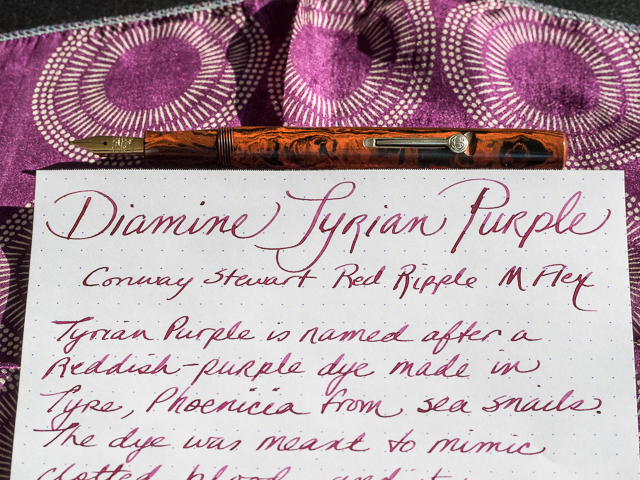 Diamine Tyrian Purple
Conway Stewart Red Ripple M Flex
Tyrian Purple is named after a
reddish-purple dye made in
Tyre, Phoenicia from sea snails.
The dye was meant to mimic
clotted blood, and